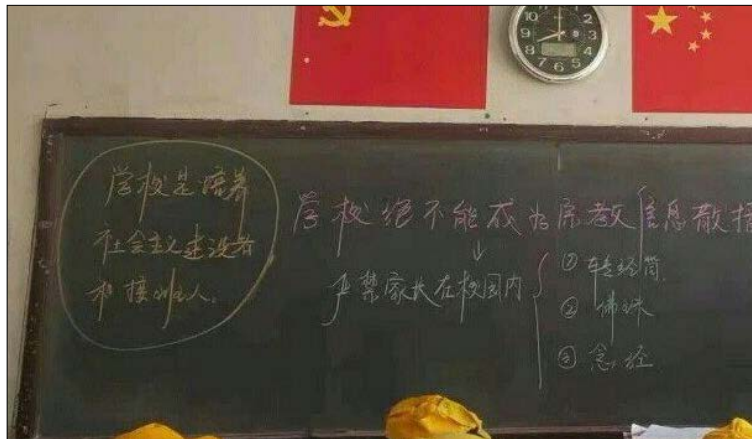 学校是培养
社会主义建设者
和接班人.
学校绝不能成为宗教信息散播
↓
严禁家长在校园内
① 转经筒.
② 佛珠
③ 念经
10
11
12
1
2
3
4
5
6
7
8
9